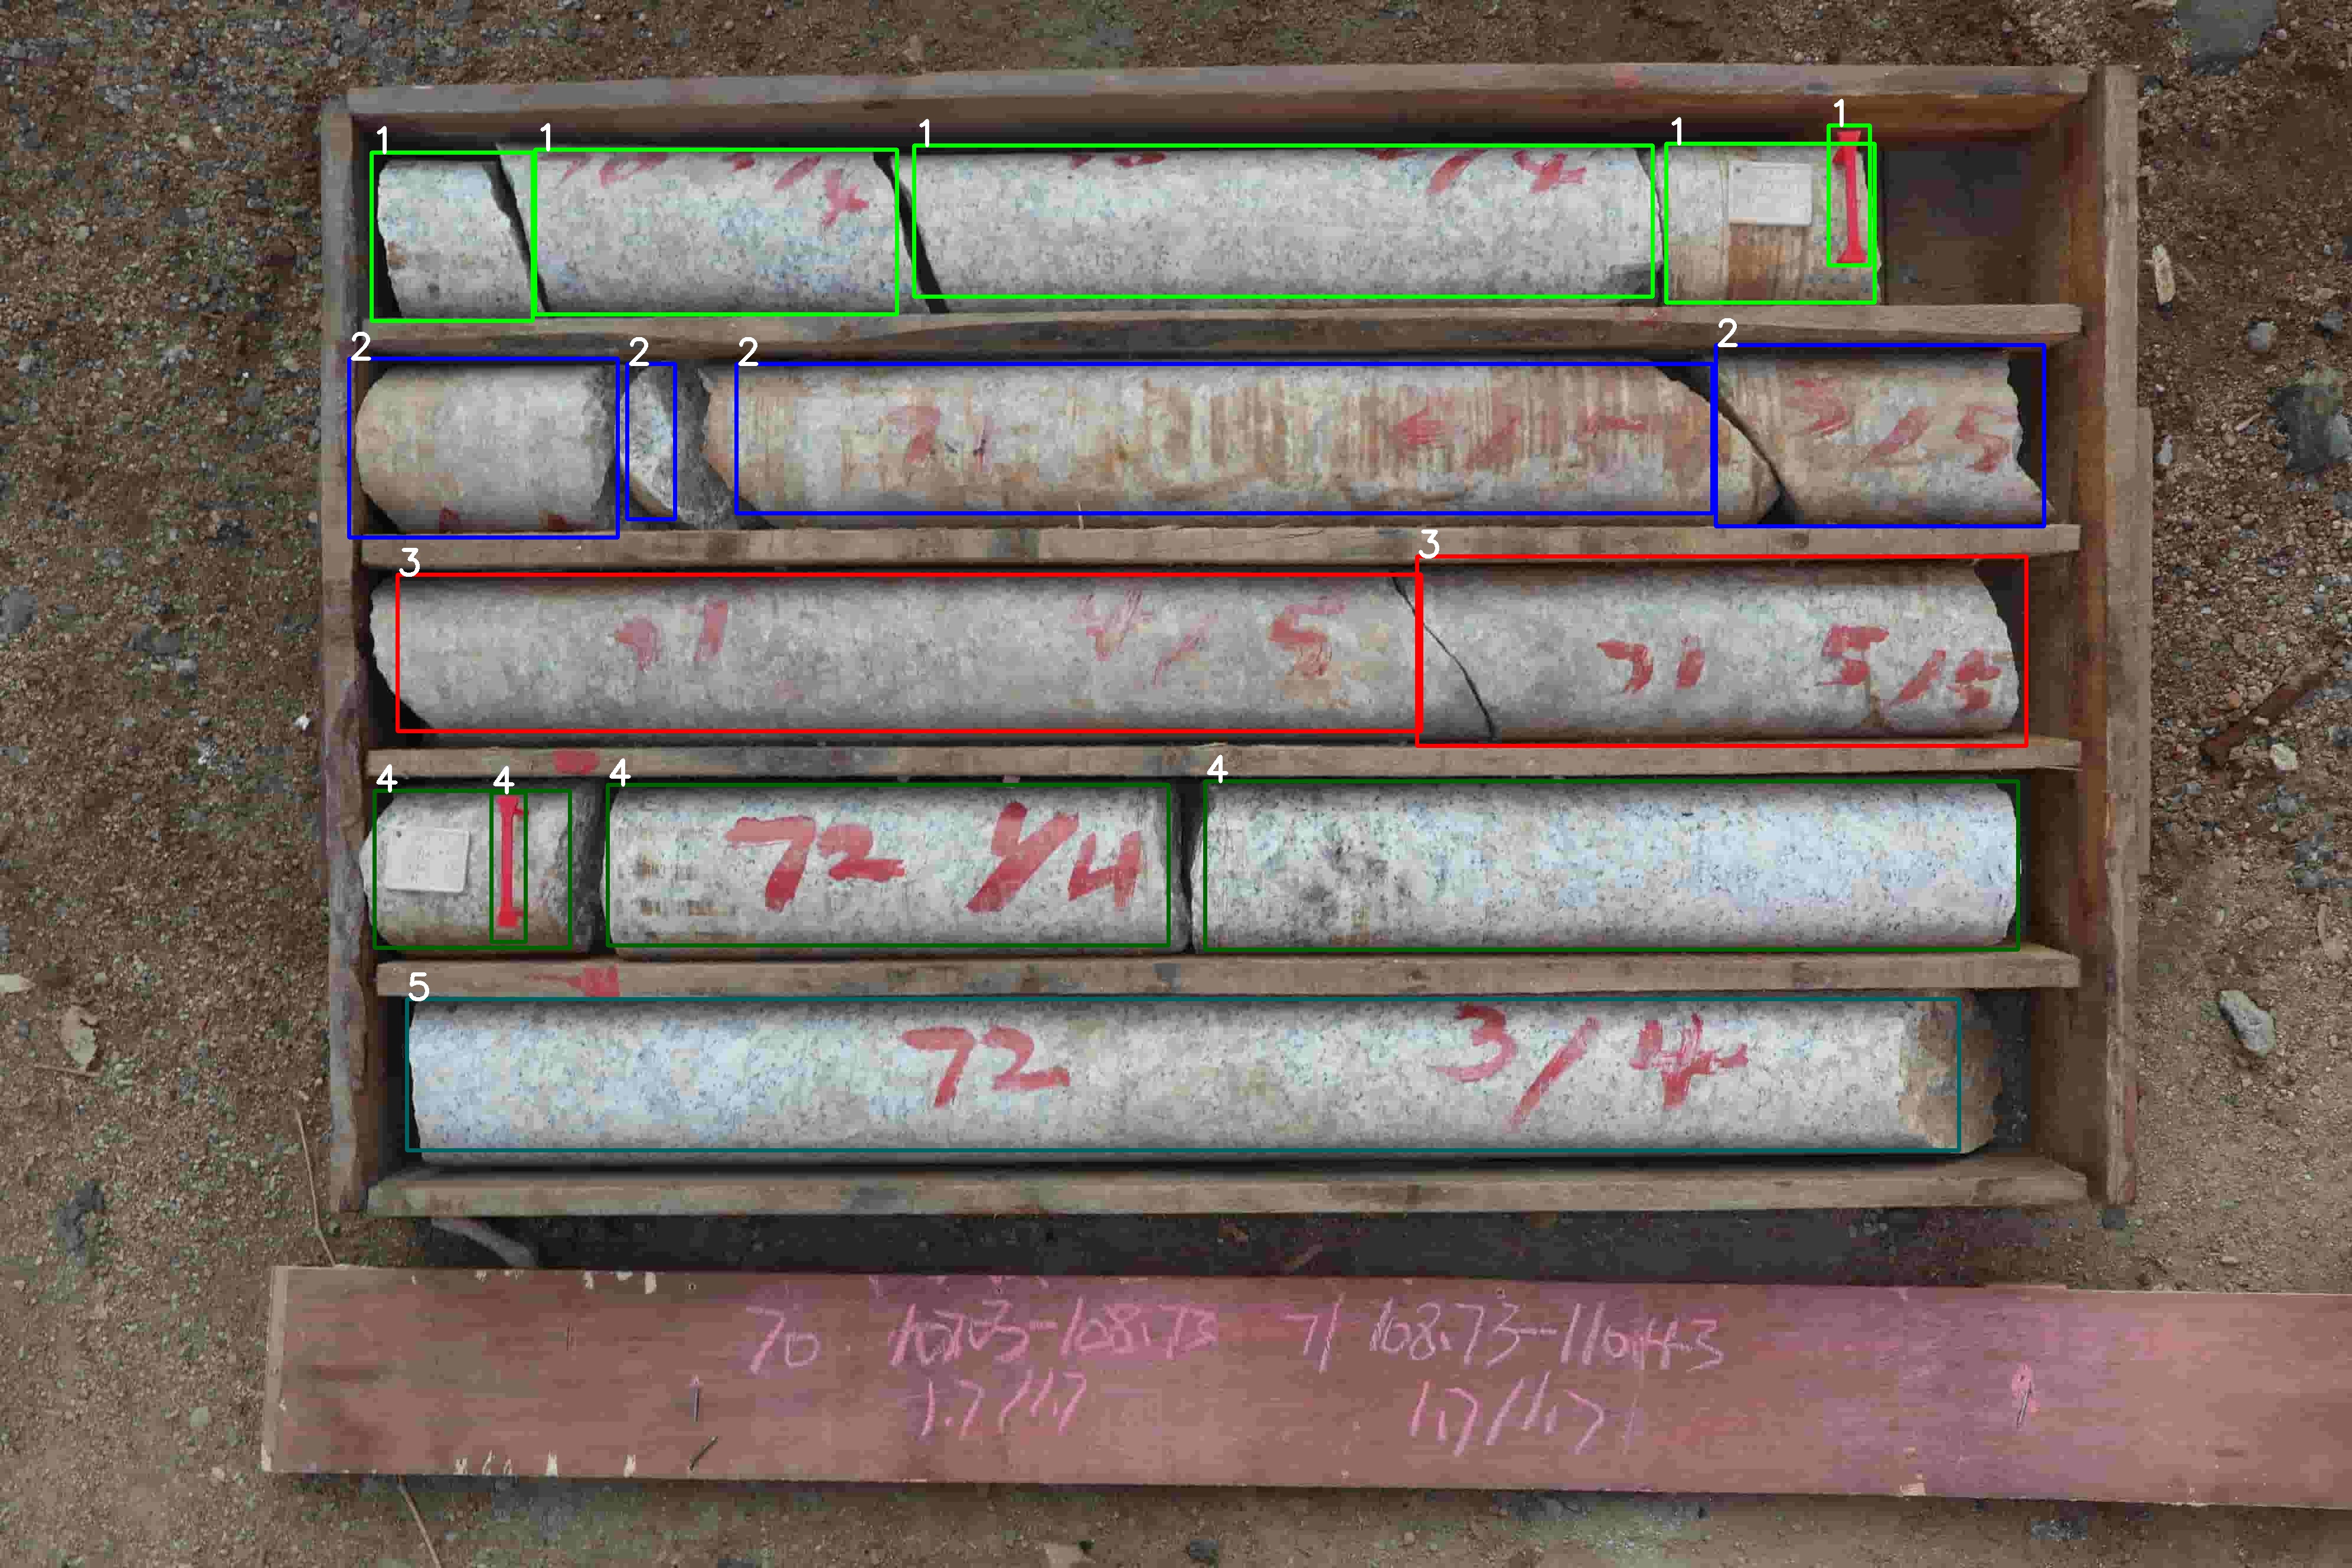 1 1 1 1 1
4
1/4
2 2 2 2
71 5/5
3 3
71 4/5 71 5/5
4 4 4 4
72 1/4
5
72 3/4
70 107.03-108.73 71 108.73--110.43
1.7/1.7 1.7/1.7